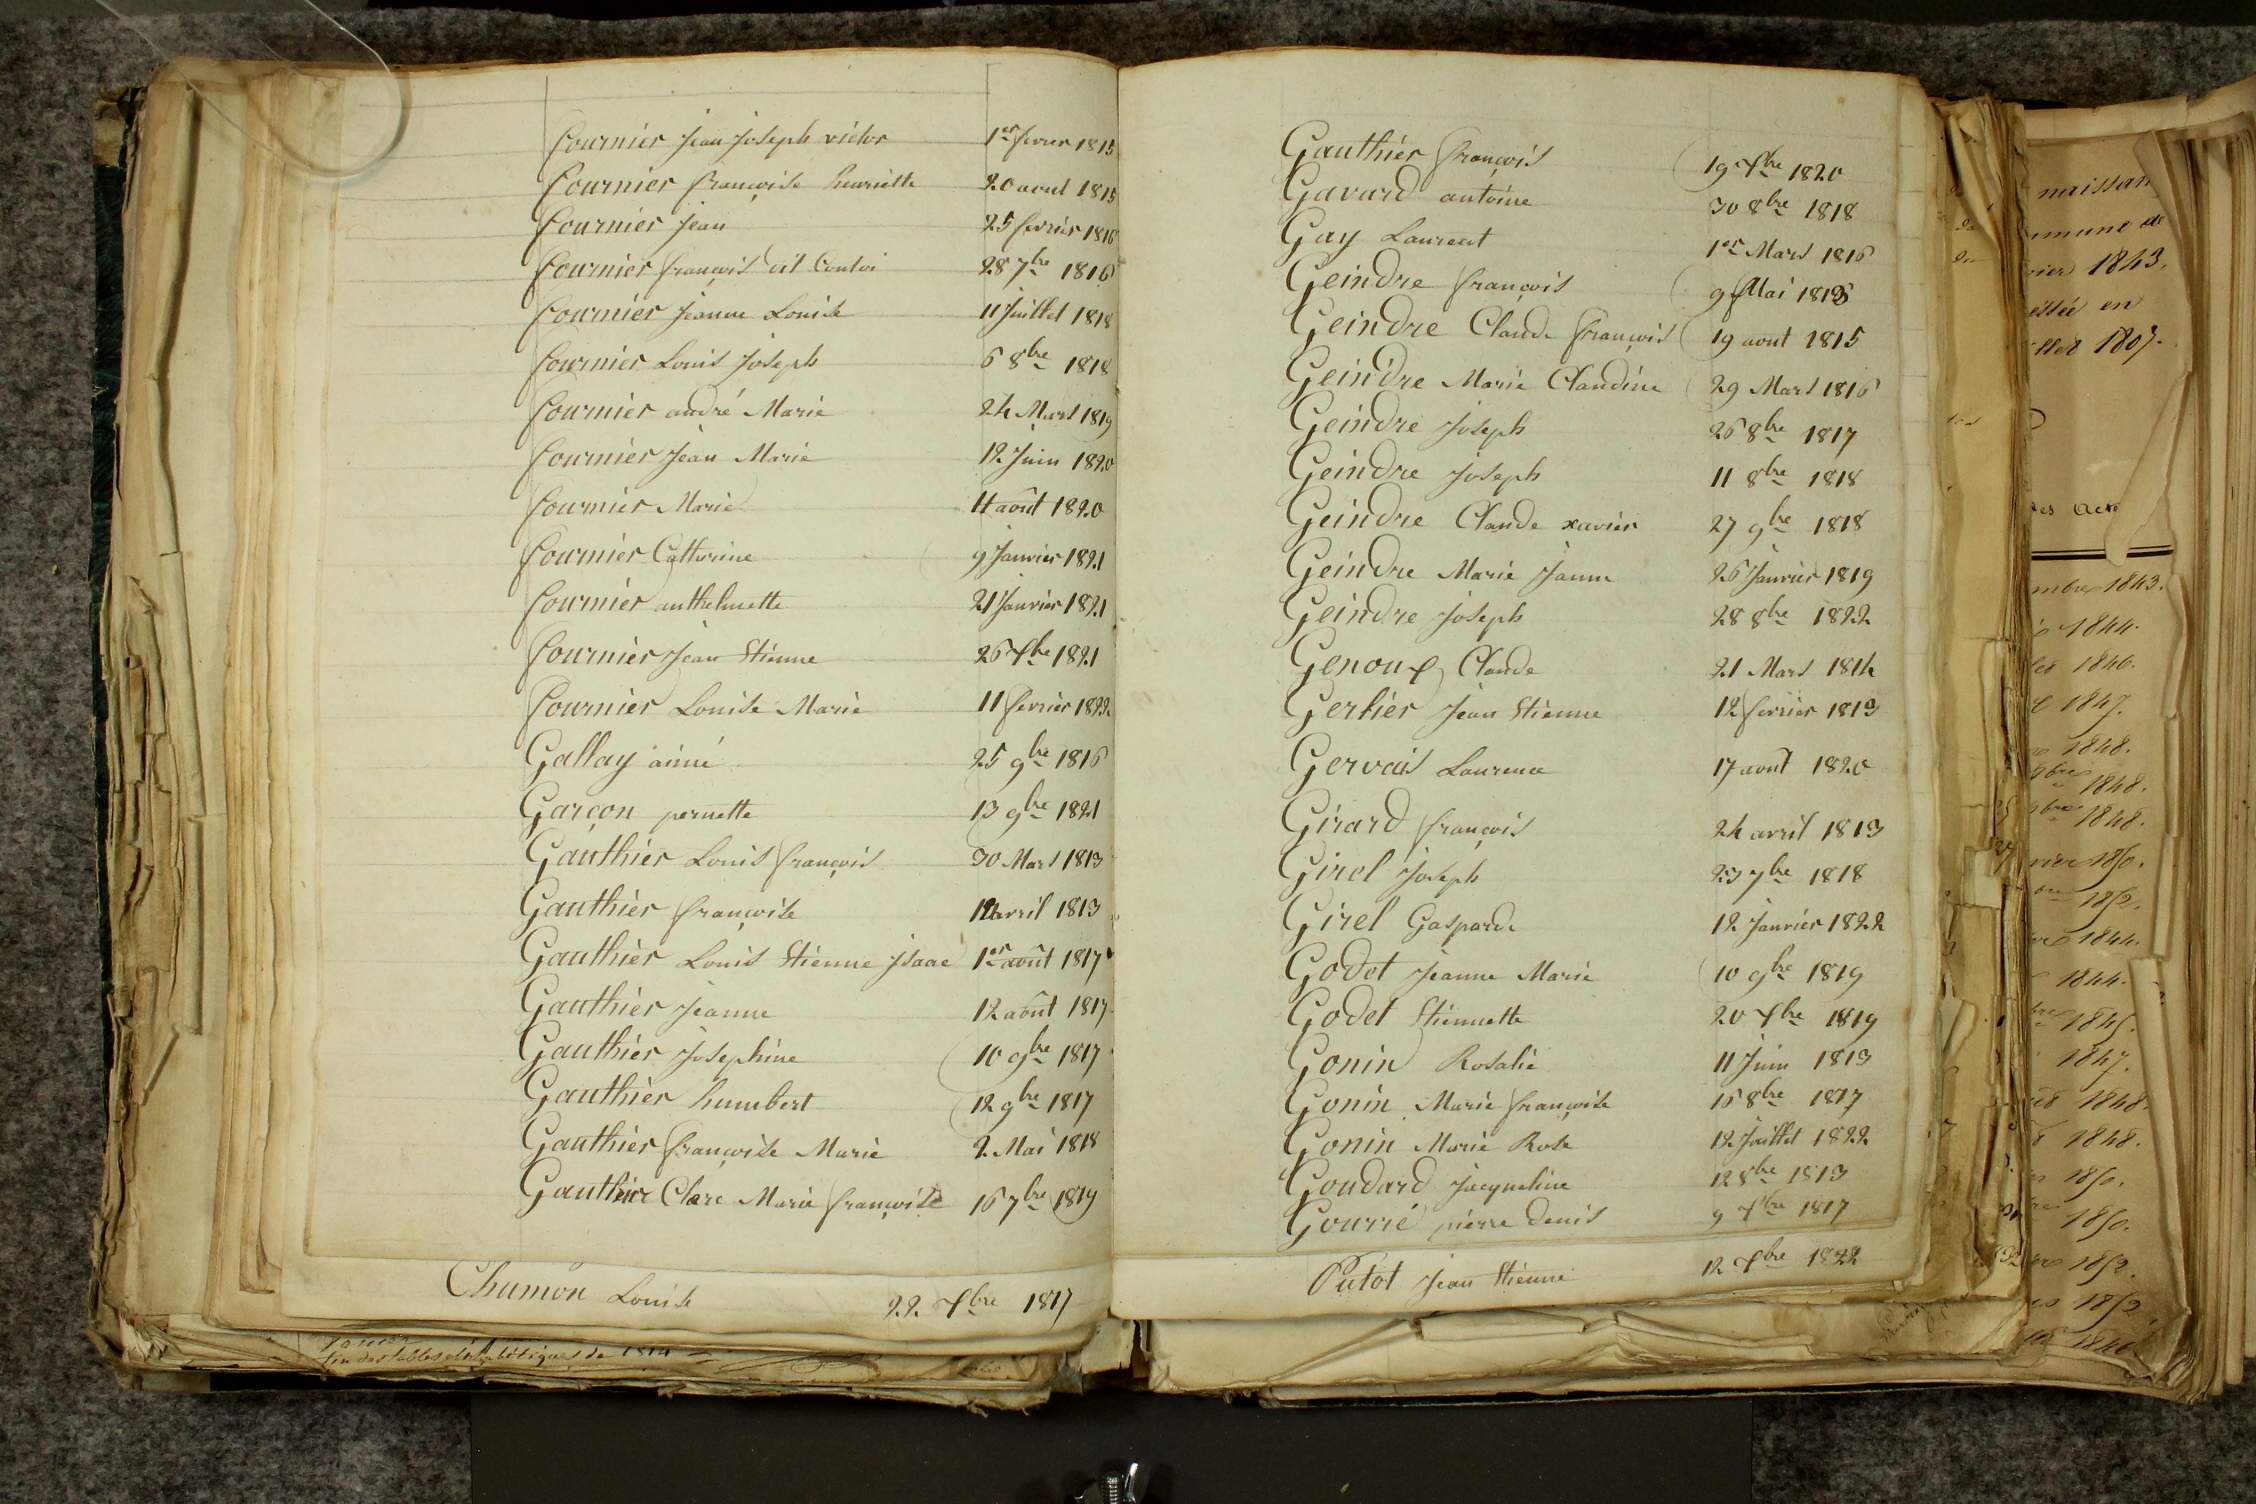 fournier jean joseph victor 1er fevrier 1815
fournier françoise henriette 20 aout 1815
fournier jean 25 fevrier 1816
fournier françois dit Contoi 28 7bre 1816
fournier jeanne Louise 11 juillet 1818
fournier Louis joseph 6 8bre 1818
fournier andré Marie 24 Mars 1819
fournier jean Marie 12 juin 1820
fournier Marie 11 août 1820
fournier Catherine 9 janvier 1821
fournier anthelmette 21 janvier 1821
fournier jean Etienne 26 Xbre 1821
fournier Louise Marie 11 fevrier 1822
Gallay aimé 25 9bre 1816
Garçon pernette 13 9bre 1821
Gauthier Louis françois 30 Mars 1813
Gauthier françoise avril 1813
Gauthier Louis Etienne jsaac 1er août 1817
Gauthier jeanne 12 août 1817
Gauthier josephine 10 9bre 1817
Gauthier humbert 12 9bre 1817
Gauthier françoise Marie 2 Mai 1818
Gauthier Clare Marie françoise 16 7bre 1819
Chumon Louise 22 Xbre 1817
fin des tables alphabétiques de 1814
Gauthier françois 19 Xbre 1820
Gavard antoine 30 8bre 1818
Gay Laurent 1er Mars 1816
Geindre françois 9 Mai
Geindre Claude françois 19 aout 1815
Geindre Marie Claudine 29 Mars 1816
Geindre joseph 26 8bre 1817
Geindre joseph 11 8bre 1818
Geindre Claude xavier 27 9bre 1818
Geindre Marie janne 26 janvier 1819
Geindre joseph 28 8bre 1822
Genoux Claude 21 Mars 1814
Gerlier jean Etienne 12 fevrier 1813
Gervais Laurence 17 aout 1820
Girard françois 24 avril 1813
Girel joseph 23 7bre 1818
Girel Gasparde 12 janvier 1822
Godet jeanne Marie 10 9bre 1819
Godet Etiennette 20 Xbre 1819
Gonin Rosalie 11 juin 1813
Gonin Marie françoise 16 8bre 1817
Gonin Marie Rose 12 juillet 1822
Goudard jacqueline 12 8bre 1813
Gourié pierre denis 9 Xbre 1817
Putot jean Etienne 12 Xbre 1822
naissan
mmune de
1843.
en
1807.
des Acte
mbre 1843.
1844.
1846.
1847.
1848.
1848.
1848.
1850.
1852.
1844.
1844.
1845.
1847.
1848.
1848.
1850.
1850.
1852.
1852